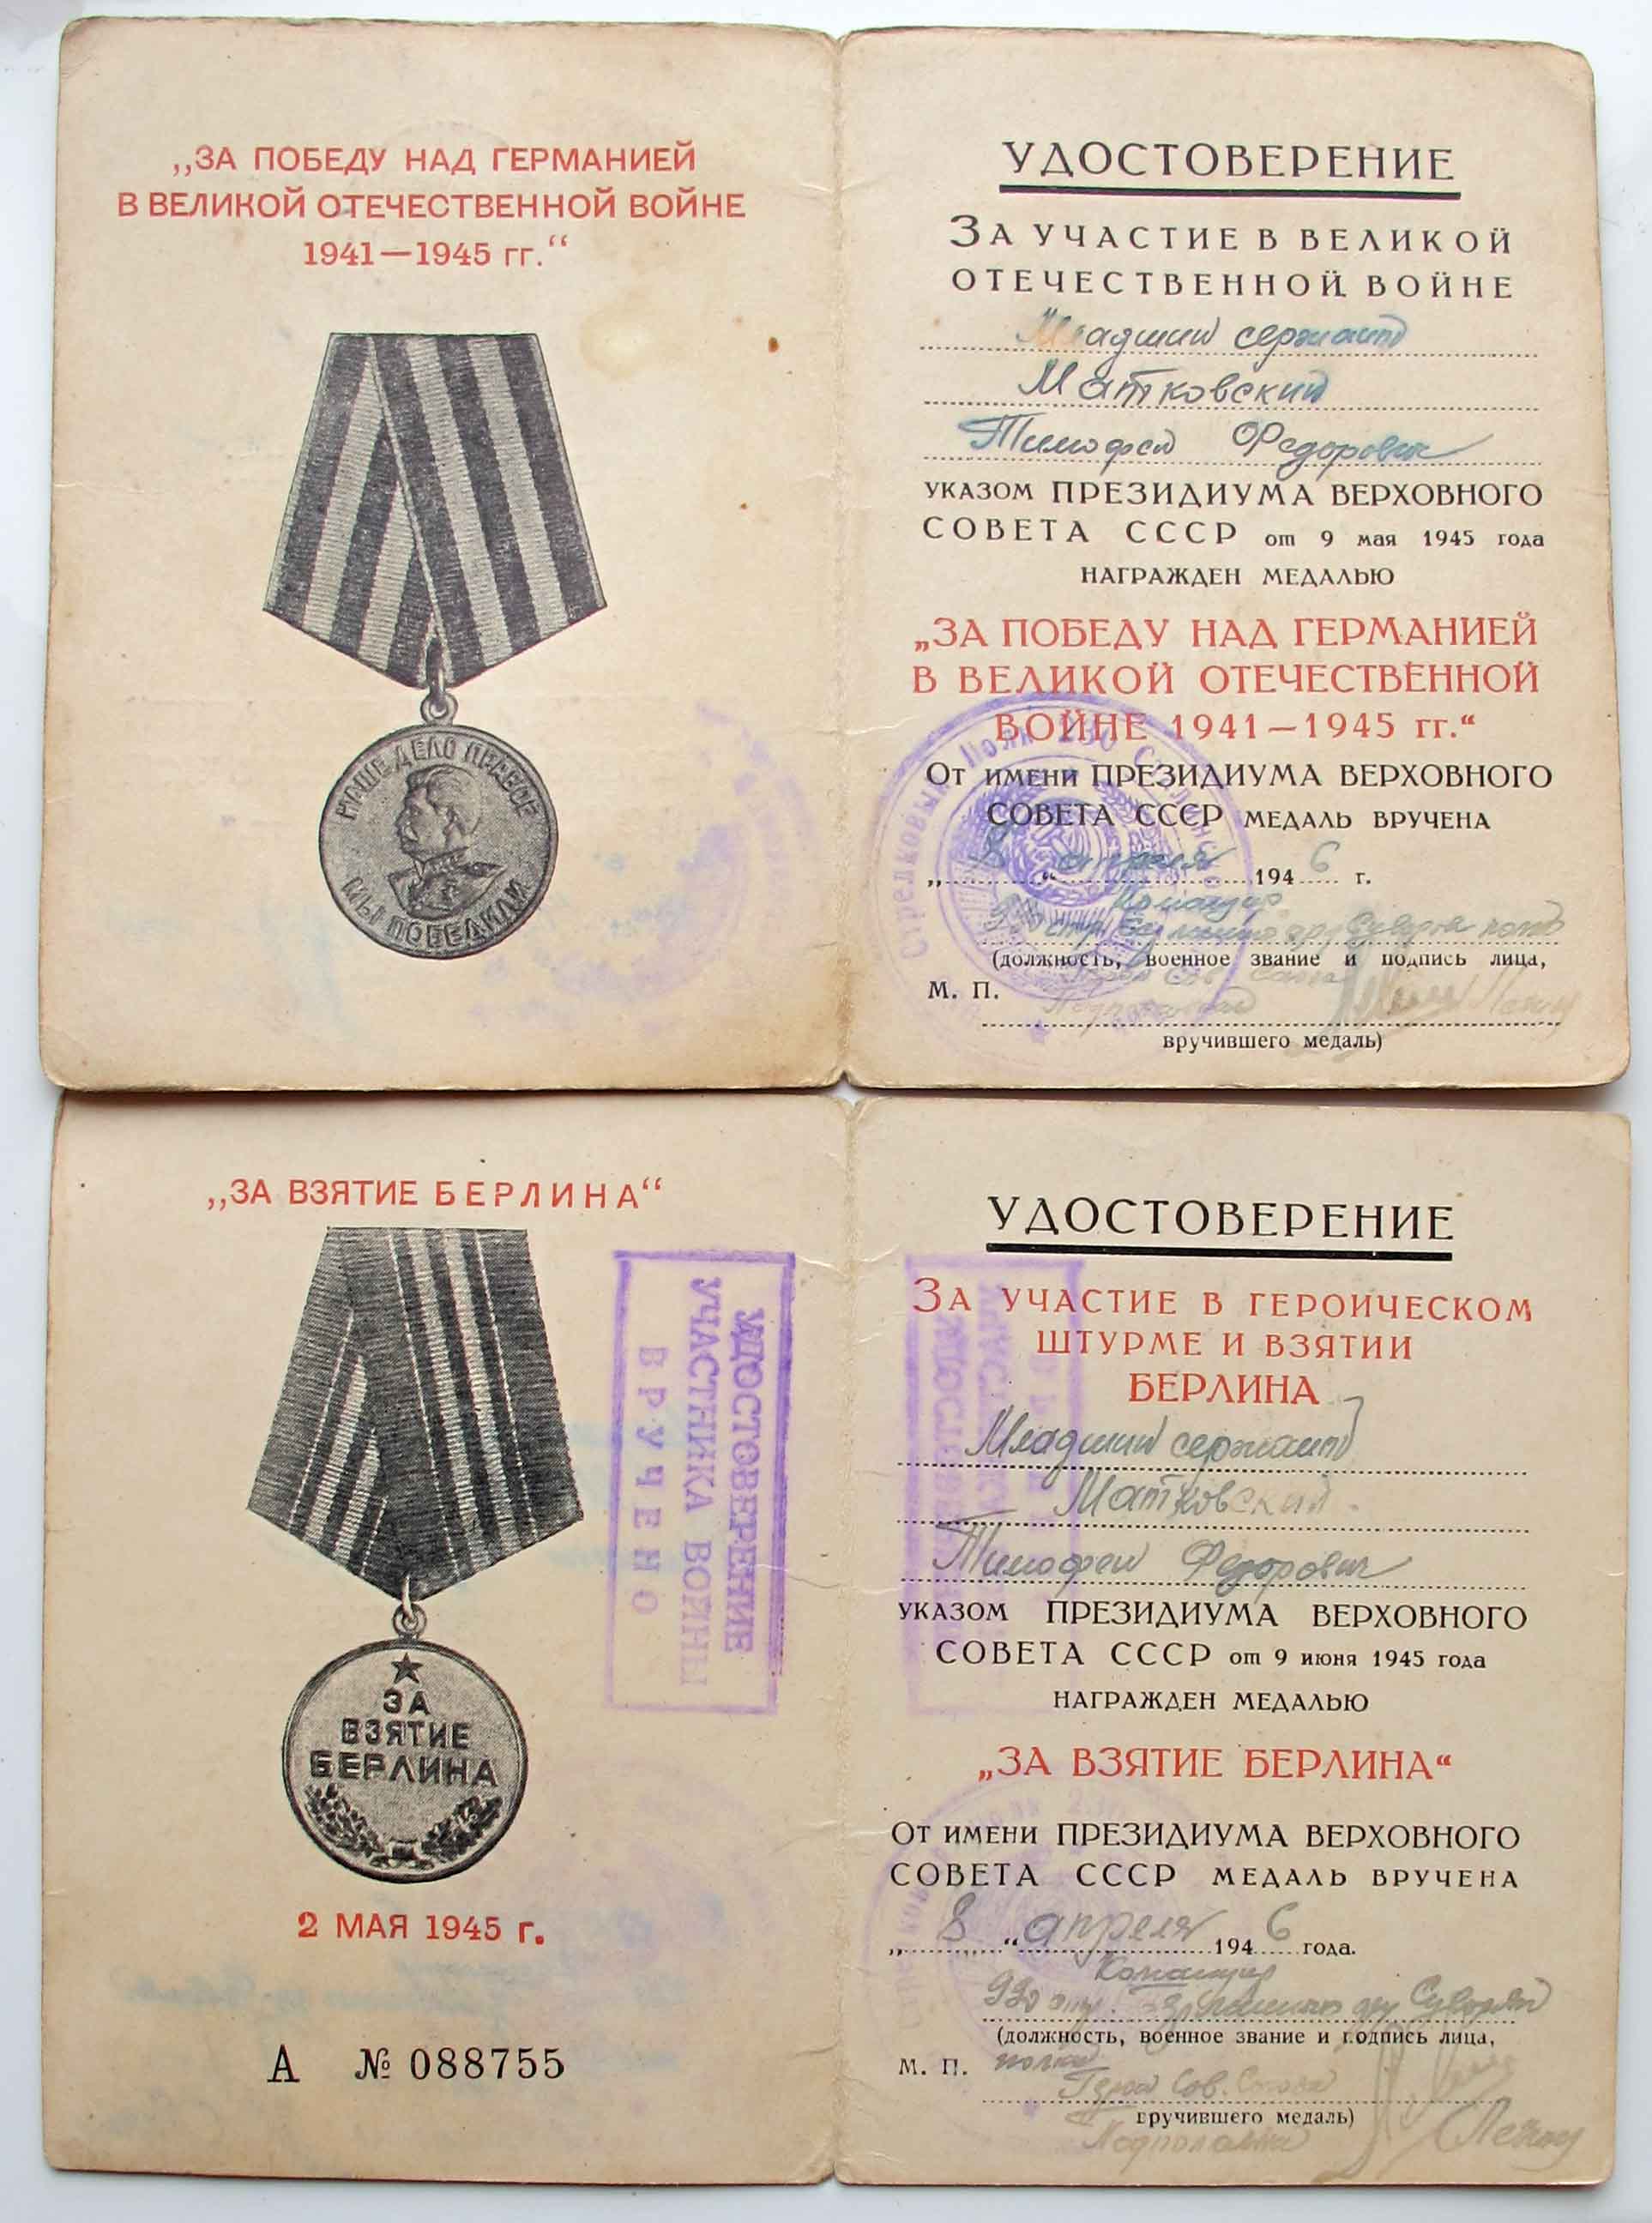 „ЗА ПОБЕДУ НАД ГЕРМАНИЕЙ
В ВЕЛИКОЙ ОТЕЧЕСТВЕННОЙ ВОЙНЕ
1941—1945 гг.“
НАШЕ ДЕЛО ПРАВОЕ
МЫ ПОБЕДИЛИ
УДОСТОВЕРЕНИЕ
ЗА УЧАСТИЕ В ВЕЛИКОЙ
ОТЕЧЕСТВЕННОЙ ВОЙНЕ
Младший сержант
Матковский
Тимофей Федорович
УКАЗОМ ПРЕЗИДИУМА ВЕРХОВНОГО
СОВЕТА СССР от 9 мая 1945 года
НАГРАЖДЕН МЕДАЛЬЮ
„ЗА ПОБЕДУ НАД ГЕРМАНИЕЙ
В ВЕЛИКОЙ ОТЕЧЕСТВЕННОЙ
ВОЙНЕ 1941—1945 гг.“
ОТ ИМЕНИ ПРЕЗИДИУМА ВЕРХОВНОГО
СОВЕТА СССР МЕДАЛЬ ВРУЧЕНА
„8“ апреля 1946 г.
Командир
(должность, военное звание и подпись лица,
М. П.
вручившего медаль)
„ЗА ВЗЯТИЕ БЕРЛИНА“
УДОСТОВЕРЕНИЕ
УЧАСТНИКА ВОЙНЫ
ВРУЧЕНО
ЗА
ВЗЯТИЕ
БЕРЛИНА
2 МАЯ 1945 г.
А № 088755
УДОСТОВЕРЕНИЕ
ЗА УЧАСТИЕ В ГЕРОИЧЕСКОМ
ШТУРМЕ И ВЗЯТИИ
БЕРЛИНА
Младший сержант
Матковский
Тимофей Федорович
УКАЗОМ ПРЕЗИДИУМА ВЕРХОВНОГО
СОВЕТА СССР от 9 июня 1945 года
НАГРАЖДЕН МЕДАЛЬЮ
„ЗА ВЗЯТИЕ БЕРЛИНА“
ОТ ИМЕНИ ПРЕЗИДИУМА ВЕРХОВНОГО
СОВЕТА СССР МЕДАЛЬ ВРУЧЕНА
„8“ апреля 1946 года.
Командир
(должность, военное звание и подпись лица,
М. П. полка
Герой Сов. Союза
вручившего медаль)
Подполковник